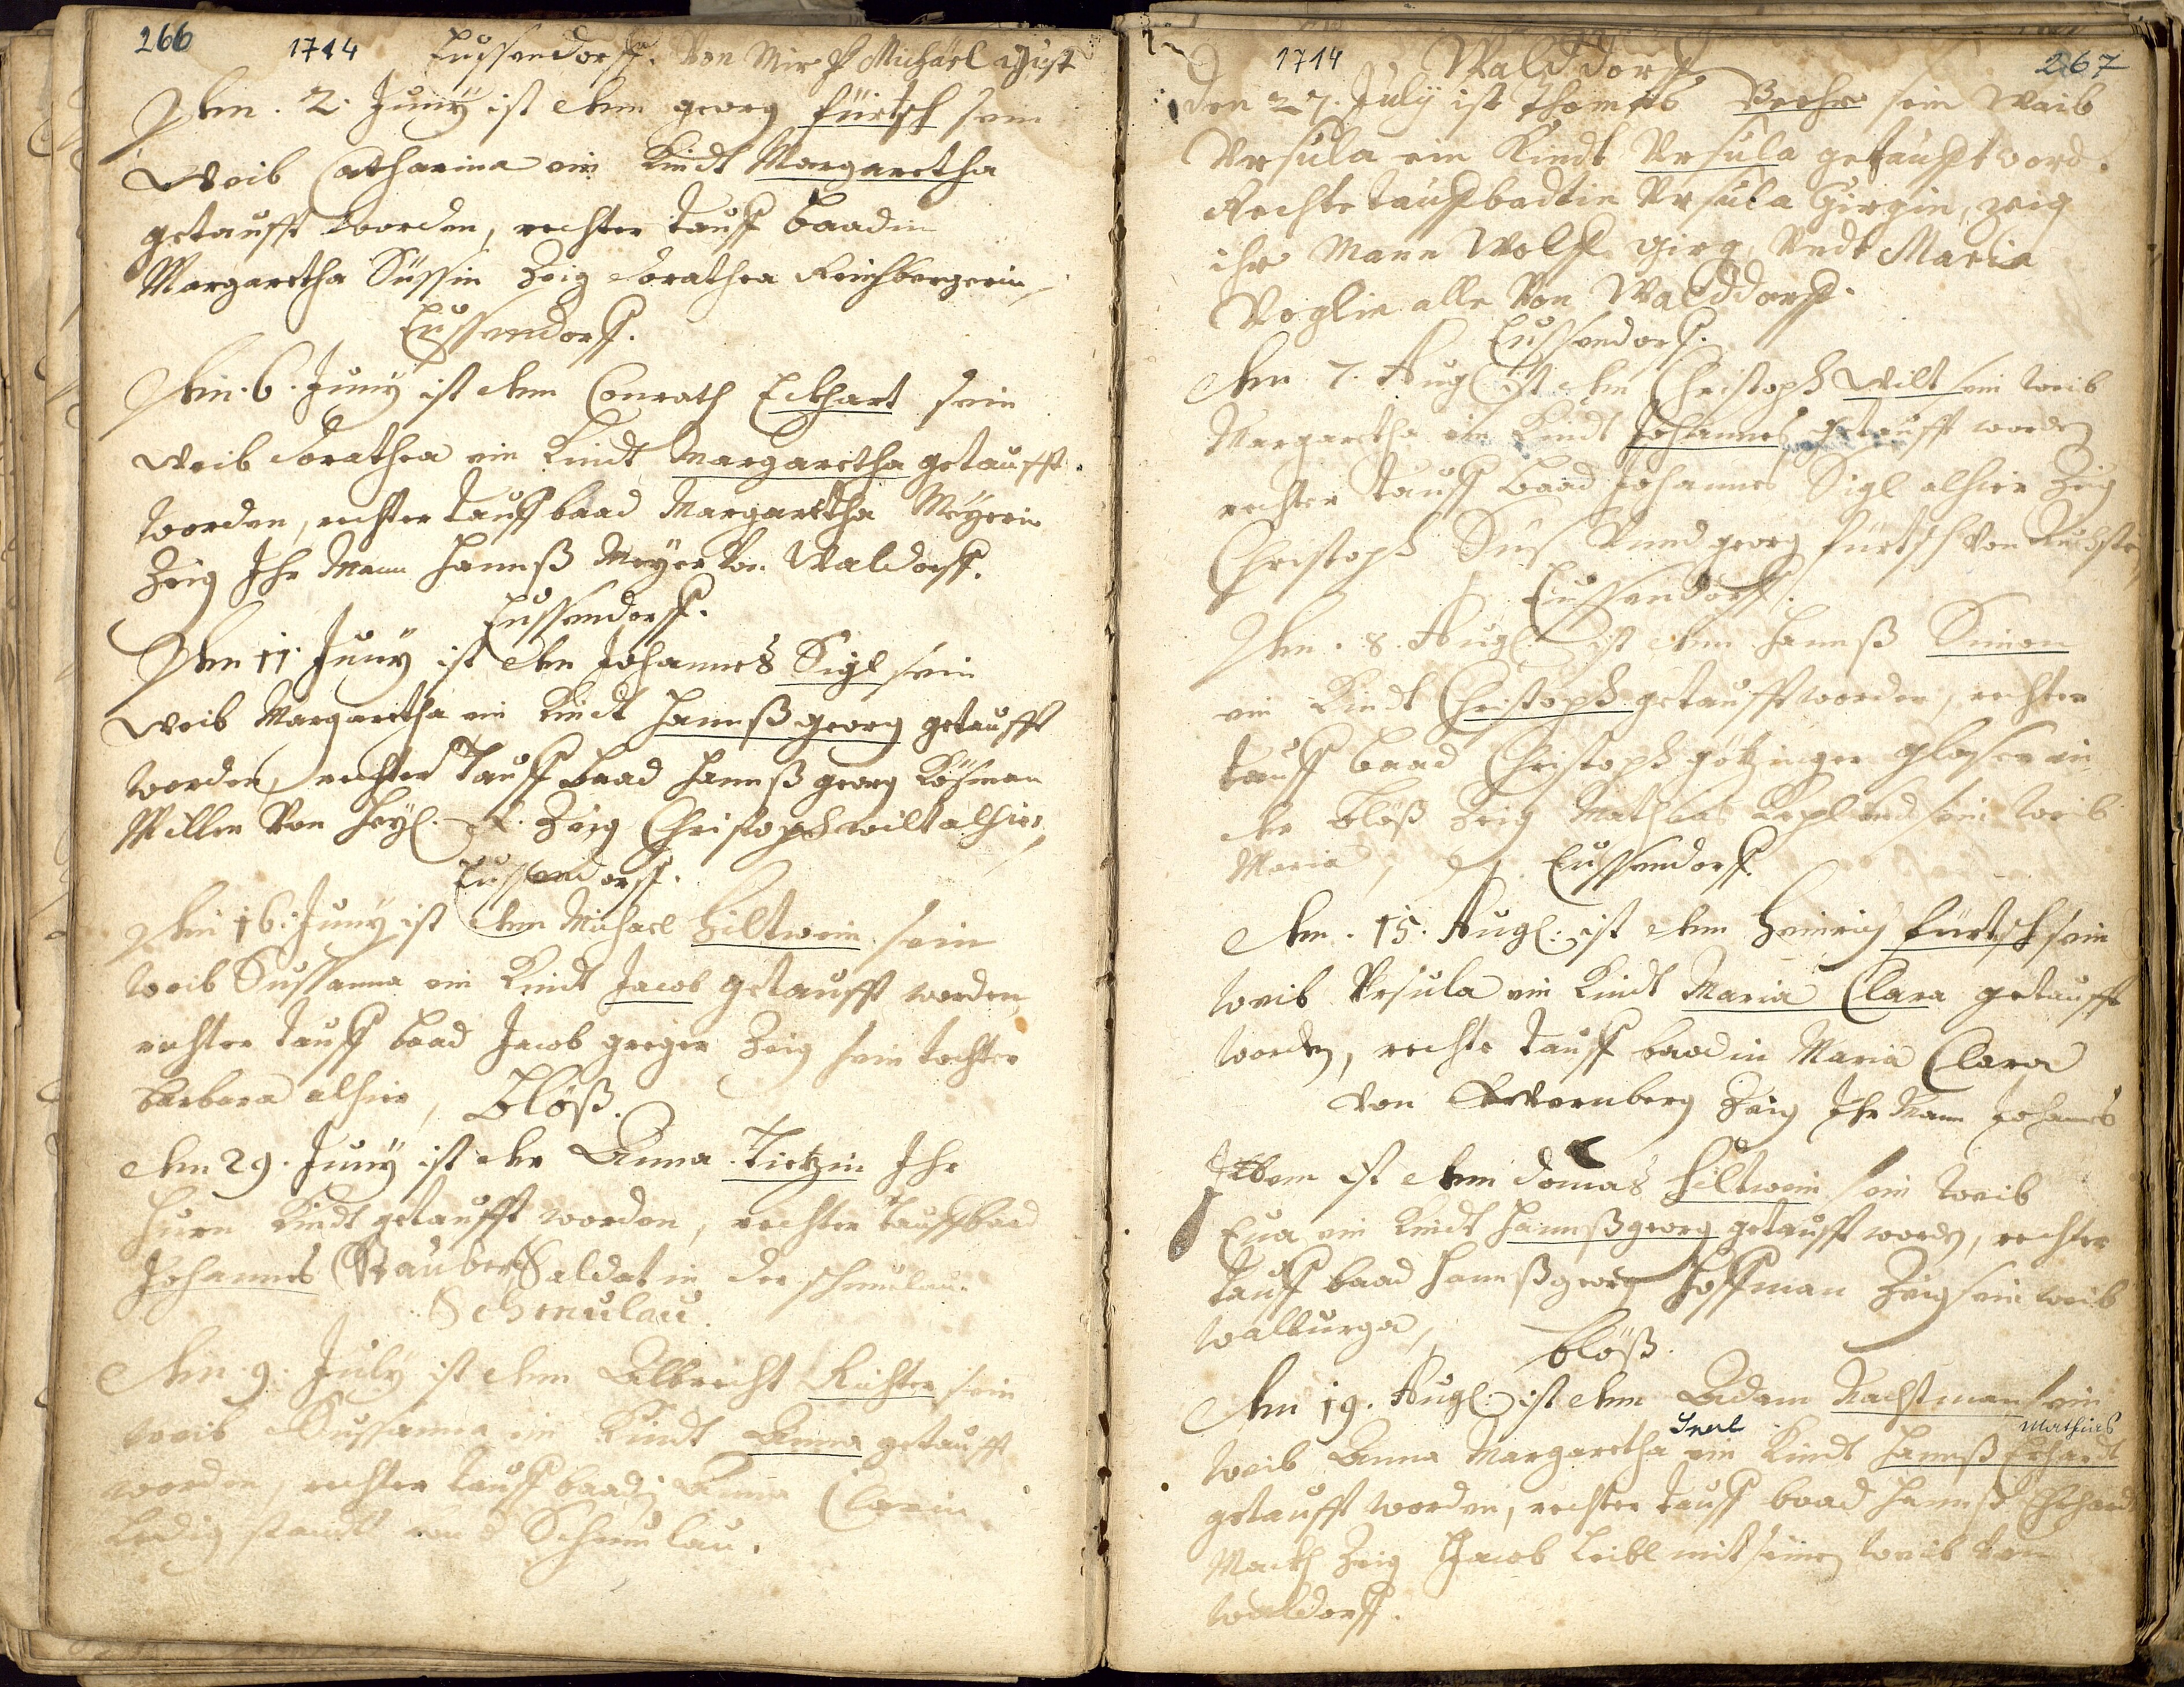 266 1714 Eussendorff. Von Mir P Michäel Just
Den . 2. Juny ist dem georg fürtsch sein
Weib Catharina ein Kindt Margaretha
getaufft worden, rechter tauff baadin
Margaretha Süssin Zeig Dorathea Reichbergerin,
Eussendorff.
Den . 6. Juny ist dem Conrath Eckhart sein
Weib Dorathea ein Kindt Margaretha getaufft
worden, rechter tauff baad Margaretha Meyerin
Zeig Ihr Mann Hannß Meyer von Waldorff.
Eussendorff.
Den 11. Juny ist dem Johannes Sigl sein
Weib Margaretha ein Kindt Hannß georg getaufft
worden, rechter Tauff baad Hannß georg
Von Heyl. Zeig Christoph wilt alhier,
Eussendorff.
Den 16. Juny ist dem Michael Hiltwein sein
Weib Sussanna ein Kindt Jacob getaufft worden,
rechter tauff baad Jacob greger Zeig sein tochter
barbara alhier, Blöß.
Den 29. Juny ist der Anna Tietzin Ihr
Huren Kindt getaufft worden, rechter tauffbaad
Johannes Rauber Saldat in der schmulau
Schmulau.
Den . 9. July ist dem Albrecht Richter sein
Weib Sussanna ein Kindt Anna getaufft
worden, rechter tauff baadin Anna Clarin
Ledig standts Schmulau.
1714 Walddorff. 267
den 27. July ist Thomas sein Waib
Ursula ein Kindt Ursula getaufft word.
Rechte tauffbadtin Ursula Girgin, zeig
ihr Mann Wolff girg Undt Maria
Voglin alle Von Walddorff.
Eussendorff.
Den 7. Aug ist dem Christoph Wilt sein Weib
Margaretha ein Kindt Johannes getaufft worden
rechter Tauff baad Johannes Sigl alhier Zeig
Christoph Süß Vnnd georg fürtsch von
Eussendorff.
Den . 8. Aug: ist dem Hannß Simon
ein Kindt Christoph getaufft worden, rechter
tauff baad Christoph götzinger glaser in
der Blöß Zeig Mathias und sein Weib
Maria, Eussendorff.
Den . 15. Aug: ist dem Heinrich fürtsch sein
Weib Ursula ein Kindt Maria Clara getaufft
worden, rechte tauff baadin Maria Clara
von Wernberg Zeig Ihr Mann Johannes
Item ist dem Domas Hiltwein sein Weib
Eua ein Kindt Hannßgeorg getaufft worden, rechter
tauff baad Hannßgeorg Hoffman Zeig sein Weib
Walburga,
Blöß.
Den 19. Aug: ist dem Adam Nachtman sein
Mathias
Weib Anna Margaretha ein Kindt Hannß Erhardt
getaufft worden, rechter tauff baad Hannß Erhard
Zeig Jacob Leibl mit seinem Weib von
Waldorff.